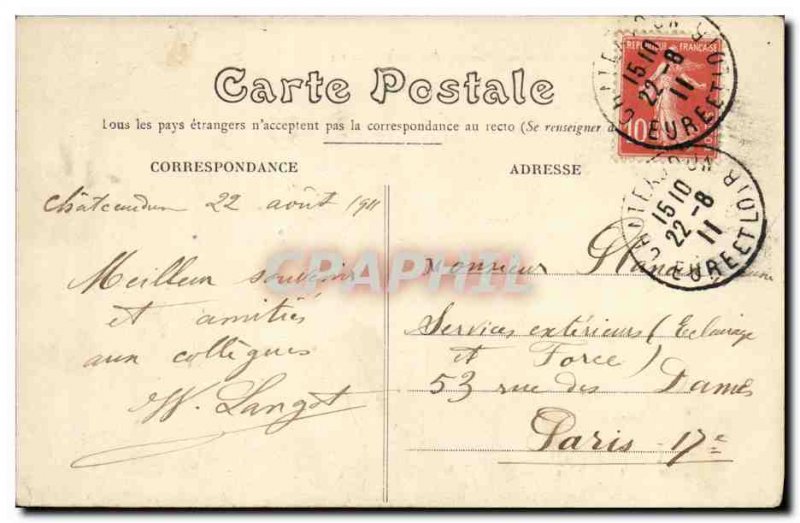 Carte Postale
Tous les pays étrangers n'acceptent pas la correspondance au recto (Se renseigner
CORRESPONDANCE
ADRESSE
REPUBLIQUE FRANÇAISE
10
CHATEAUDUN
15 10
22 - 8
11
EURE ET LOIR
CHATEAUDUN
15 10
22 - 8
11
EURE ET LOIR
Châteaudun 22 août 1911
Meilleur souvenir
et amitiés
aux collègues
W. Langot
Monsieur
Services extérieurs (Eclairage
et Force)
53 rue des Dames
Paris - 17e
CPAPHIL